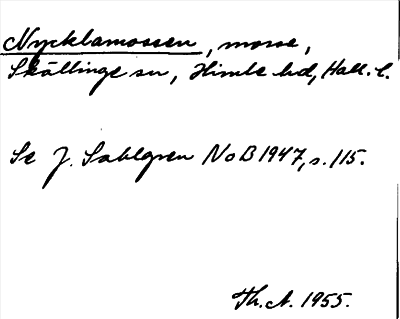 Nycklamossen, mosse,
Skällinge sn, Himle hd, Hall. l.
Se J. Sahlgren NoB 1947, s. 115.
Th. A. 1955.